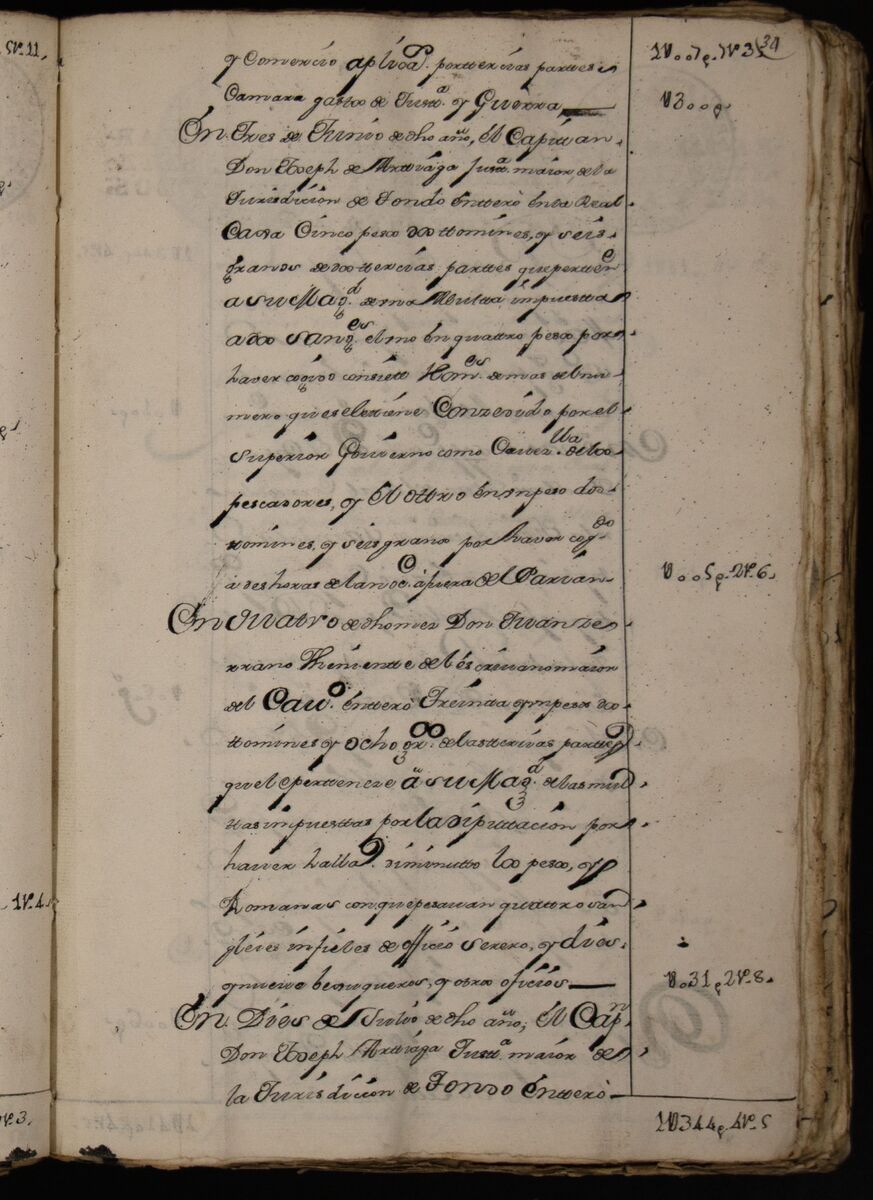 y Comercio aplicda. por tercias partes
Camara gastos de Justa. y Guerra
En Tres de Junio de dho año, el Capitan
Don Joseph de Arttiága Justa. maior de la
Jurisdicion de Tondo Enttero en la Real
Caxa Cinco pesos dos ttomines, y seis
granos de dos ttercias parttes que pertten
a su Magd. de una Multta impuestta
a dos sangs. el uno en quattro pesos por
haver cogido con siett Homs. de mas del nu
mero que se le tiene Conzedido por el
superior Govierno como Cavezlla. de los
pescadores, y El ottro en un peso dos
tomines, y seis granos por haver cogdo
a deshoras de la noce. afuera del Parian
En Quatro de dho mes Don Juan Ze
rrano Theniente del Escrivano maior
del Cavo. Enttero Treinta y un pesos dos
ttomines y ocho gros. de las ttercias parttes
que le perttenece a su Magd. de las mul
tas impuesttas por la Diputtacion por
haver hallado diminutto los pesos, y
Romanas con que pesavan quattro san
gleies infieles de officio Serero, y dies
y nueve bonugueros, y otros oficios
En Dies de Julio de dho año, el Capn.
Don Joseph Arttiága Justta. maior de
la Jurisdicion de Tondo Enttero
34
U005p.2r.6.
U031p.2r.8.
1U344p.4r.5